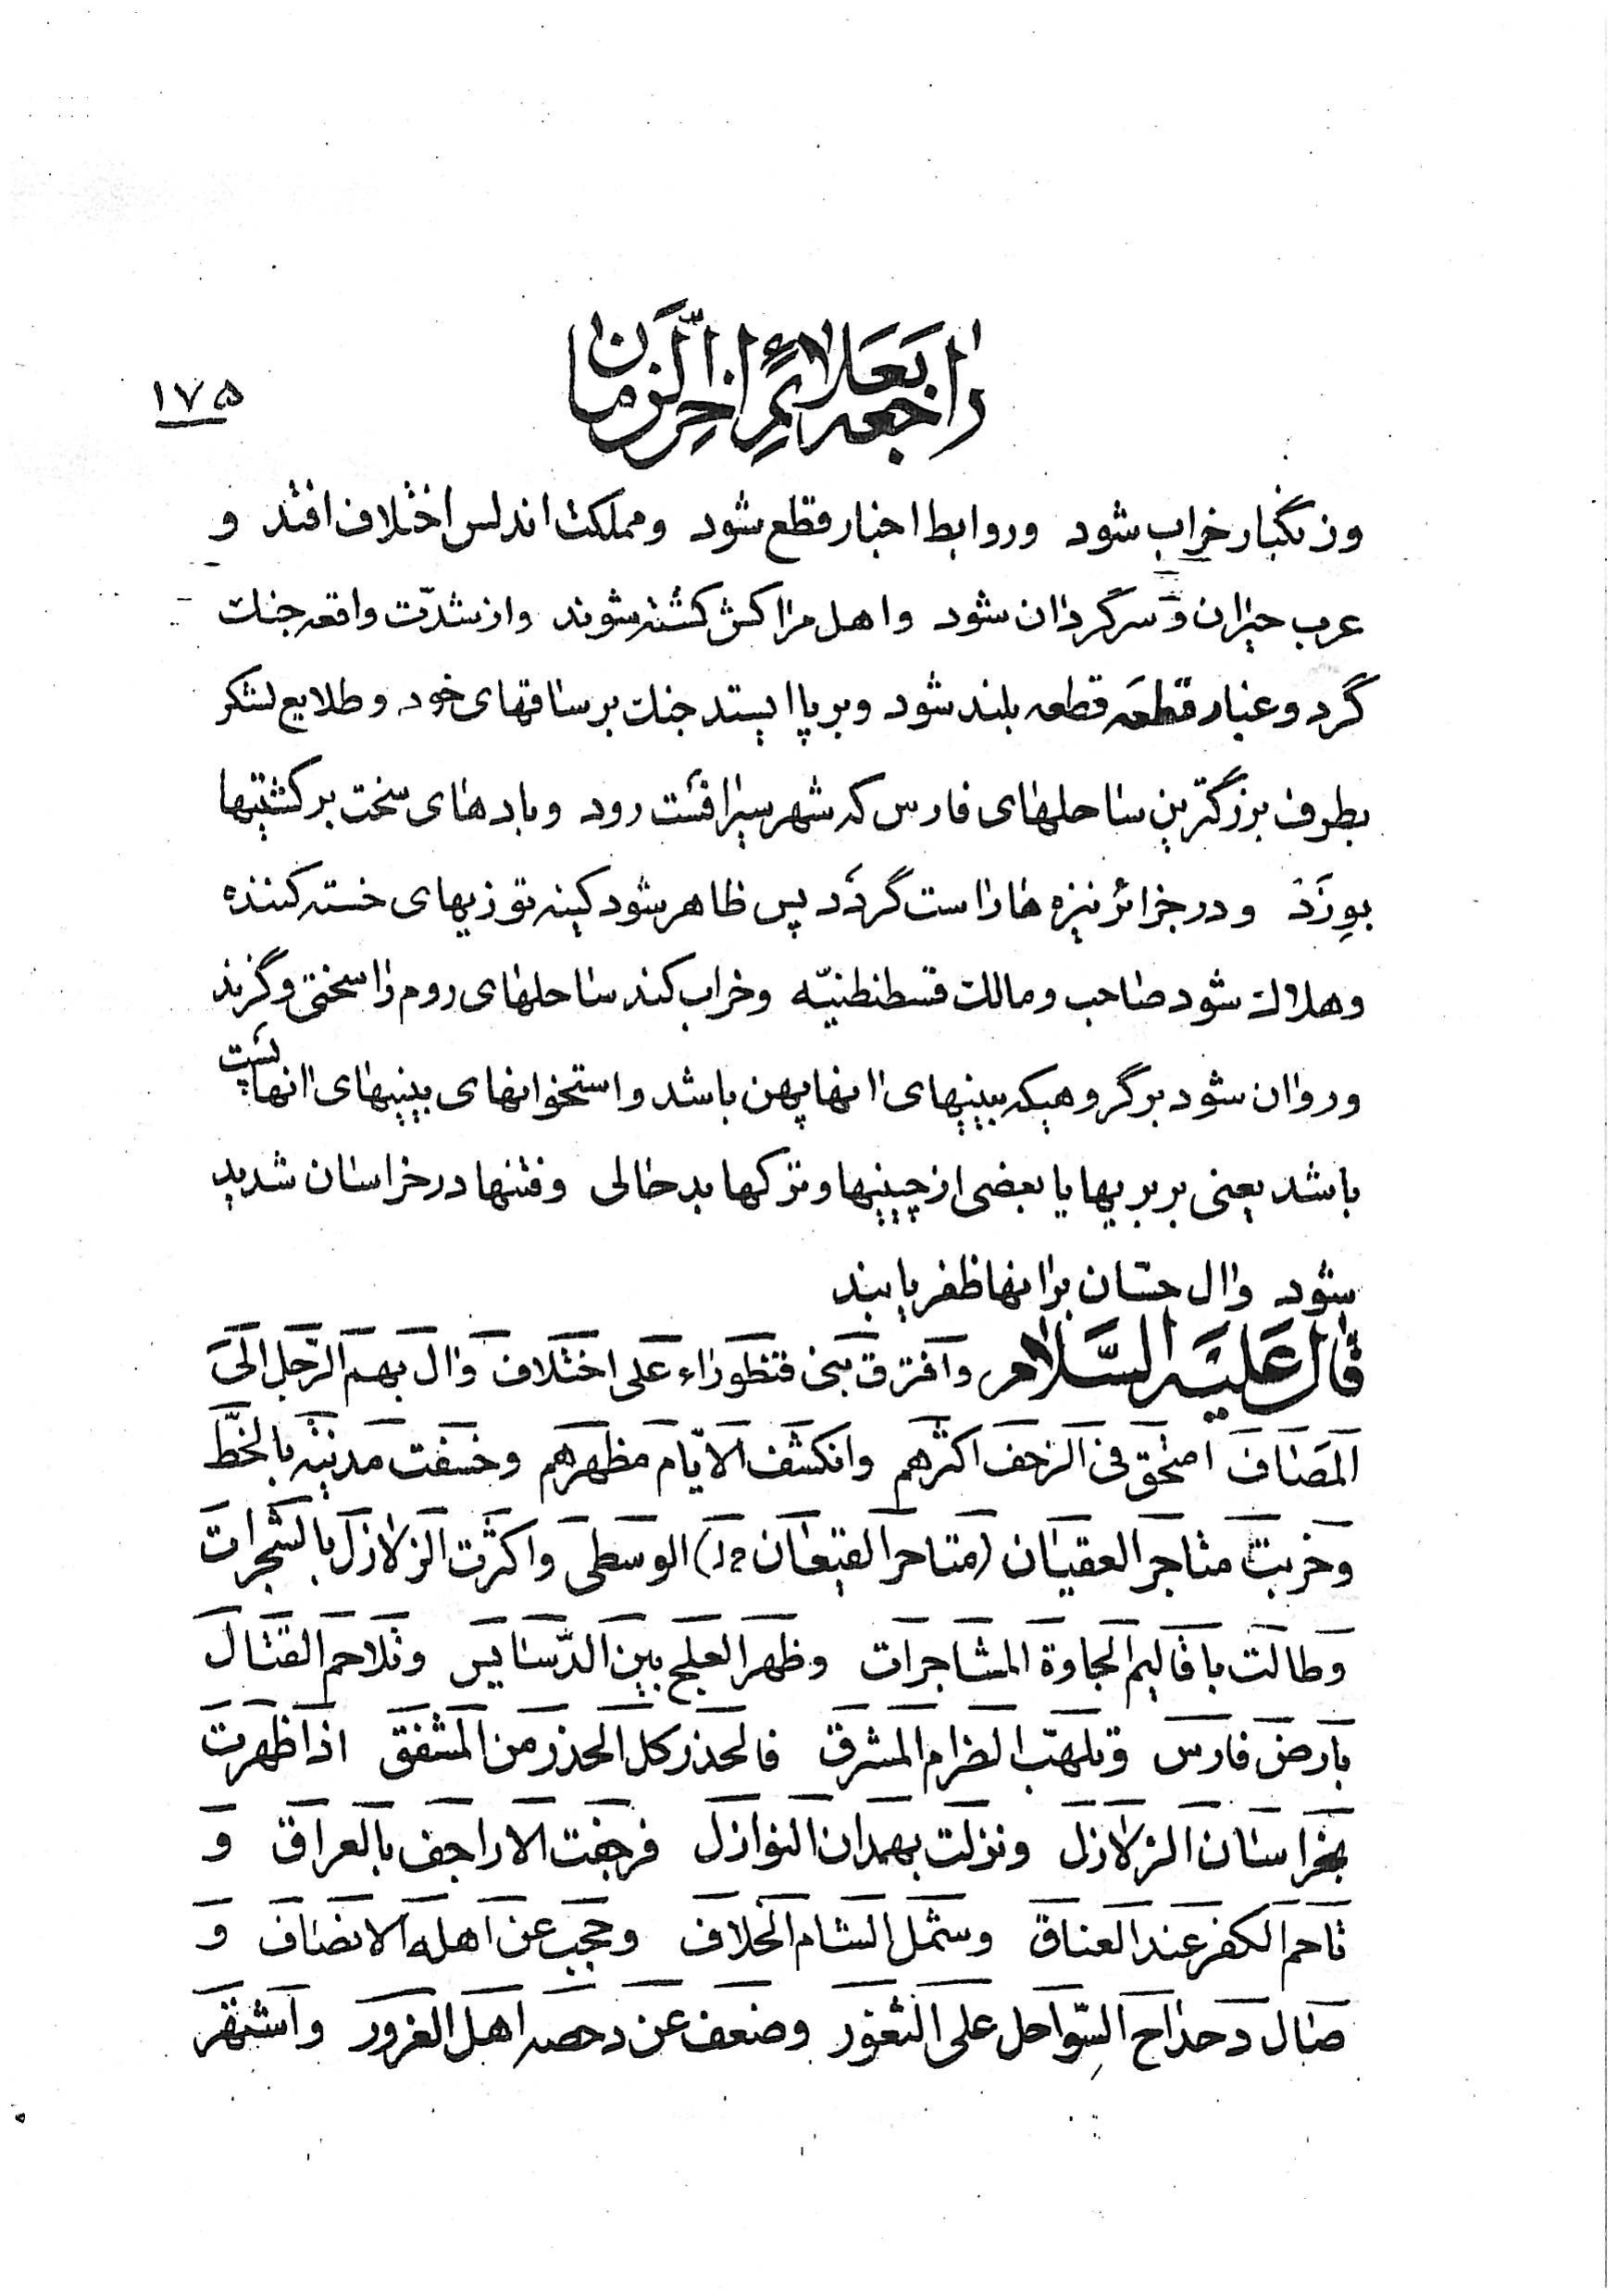 راجعه بعلائم اخر الزمان
۱۷۵
وزنگبار خراب شود وروابط اخبار قطع شود ومملکت اندلس اختلاف افتد و
عرب حیران و سرگردان شود واهل مراکش کشته شوند واز شدّت واقعه جنك
گرد وغبار قطعه قطعه بلند شود وبرپا ایستد جنك بر ساقهای خود وطلایع لشکر
بطرف بزرگترین ساحلهای فارس که شهر سیرافست رود وبادهای سخت بر کشتیها
بوزد ودر جزائر نیزه ها راست گردد پس ظاهر شود کینه توزیهای خسته کننده
وهلاك شود صاحب ومالك قسطنطنیّه وخراب کند ساحلهای روم را سختی وگزند
وروان شود بر گروهیکه بینیهای آنها پهن باشد واستخوانهای بینیهای آنها پست
باشد یعنی بربریها یا بعضی از چینیها وترکها بدحالی وفتنها در خراسان شدید
شود وال حسّان بر آنها ظفر یابند
قال علیه السّلام وافترق بنی قنطوراء علی اختلاف وال بهم الرّجل الی
المصاف امتحق فی الزحف اکثرهم وانکشف الایّام مظهرهم وخسفت مدینه بالخطّ
وخربت متاجر العقیان (متاجر القیعان خ‌ل) الوسطی واکثرت الزلازل بالشّجرات
وطالت باقالیم الجاوة المشاجرات وظهر العلج بین الدّسایس وتلاحم القتال
بارض فارس وتلهّب الضرام المشرق فالحذر کل الحذر من المشفق اذا ظهرت
بخراسان الزلازل ونزلت بهمدان النوازل فرجفت الاراجف بالعراق و
تاحم الکفر عند العناق وشمل الشام الخلاف وحجب عن اهله الانصاف و
صال دحداح السّواحل علی الثغور وضعف عن دحصه اهل الغرور واشتهر